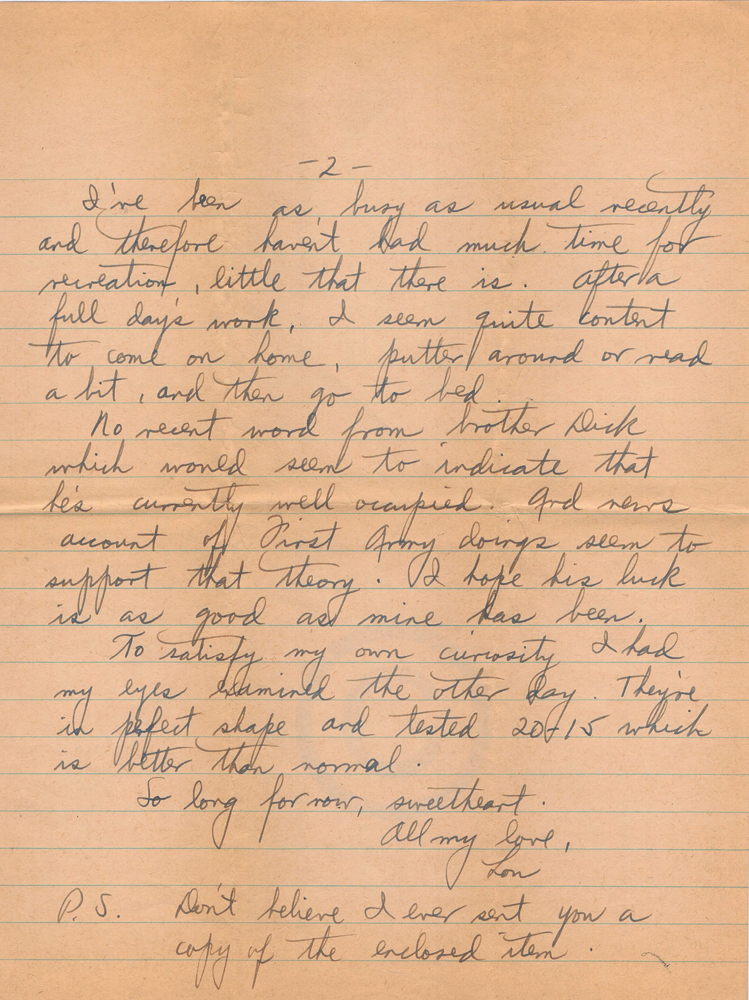 -2-
I've been as busy as usual recently
and therefore haven't had much time for
recreation, little that there is. After a
full day's work, I seem quite content
to come on home, putter around or read
a bit, and then go to bed.
No recent word from brother Dick
which would seem to indicate that
he's currently well occupied. And news
account of First Army doings seem to
support that theory. I hope his luck
is as good as mine has been.
To satisfy my own curiosity I had
my eyes examined the other day. They're
in perfect shape and tested 20-15 which
is better than normal.
So long for now, sweetheart.
All my love,
Lon
P.S. Don't believe I ever sent you a
copy of the enclosed item.